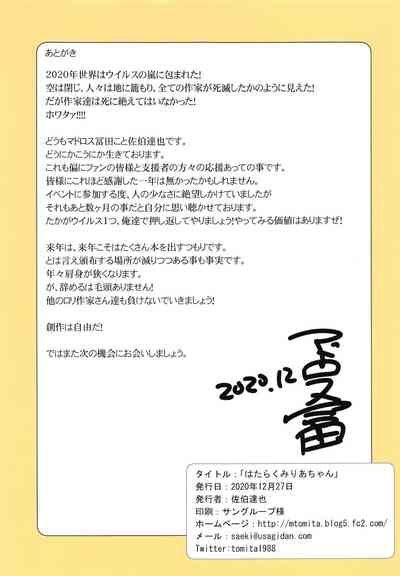 あとがき
2020年世界はウイルスの嵐に包まれた!
空は閉じ、人々は地に籠もり、全ての作家が死滅したかのように見えた!
だが作家達は死に絶えてはいなかった!
ホワタァ!!!!
どうもマドロス冨田こと佐伯達也です。
どうにかこうにか生きております。
これも偏にファンの皆様と支援者の方々の応援あっての事です。
皆様にこれほど感謝した一年は無かったかもしれません。
イベントに参加する度、人の少なさに絶望しかけていましたが
それもあと数ヶ月の事だと自分に思い聴かせております。
たかがウイルス1つ、俺達で押し返してやりましょう!やってみる価値はありますぜ!
来年は、来年こそはたくさん本を出すつもりです。
とは言え頒布する場所が減りつつある事も事実です。
年々肩身が狭くなります。
が、辞めるは毛頭ありません!
他のロリ作家さん達も負けないでいきましょう!
創作は自由だ!
ではまた次の機会にお会いしましょう。
2020.12
タイトル:「はたらくみりあちゃん」
発行日:2020年12月27日
発行者:佐伯達也
印刷:サングループ様
ホームページ:http://mtomita.blog5.fc2.com/
メール:saeki@usagidan.com
Twitter:tomita1988